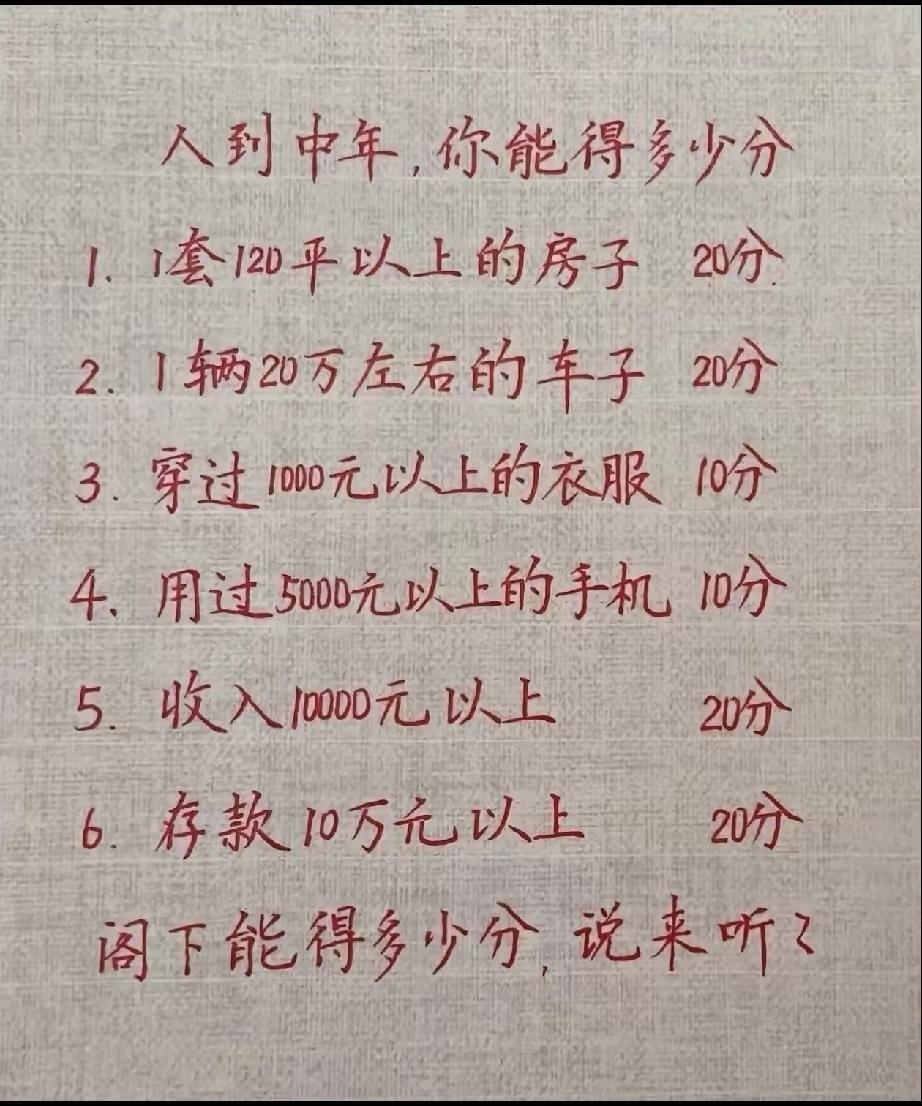 人到中年,你能得多少分
1. 1套120平以上的房子 20分.
2. 1辆20万左右的车子 20分
3. 穿过1000元以上的衣服 10分
4、用过5000元以上的手机 10分
5. 收入10000元以上 20分
6. 存款10万元以上 20分
阁下能得多少分,说来听?